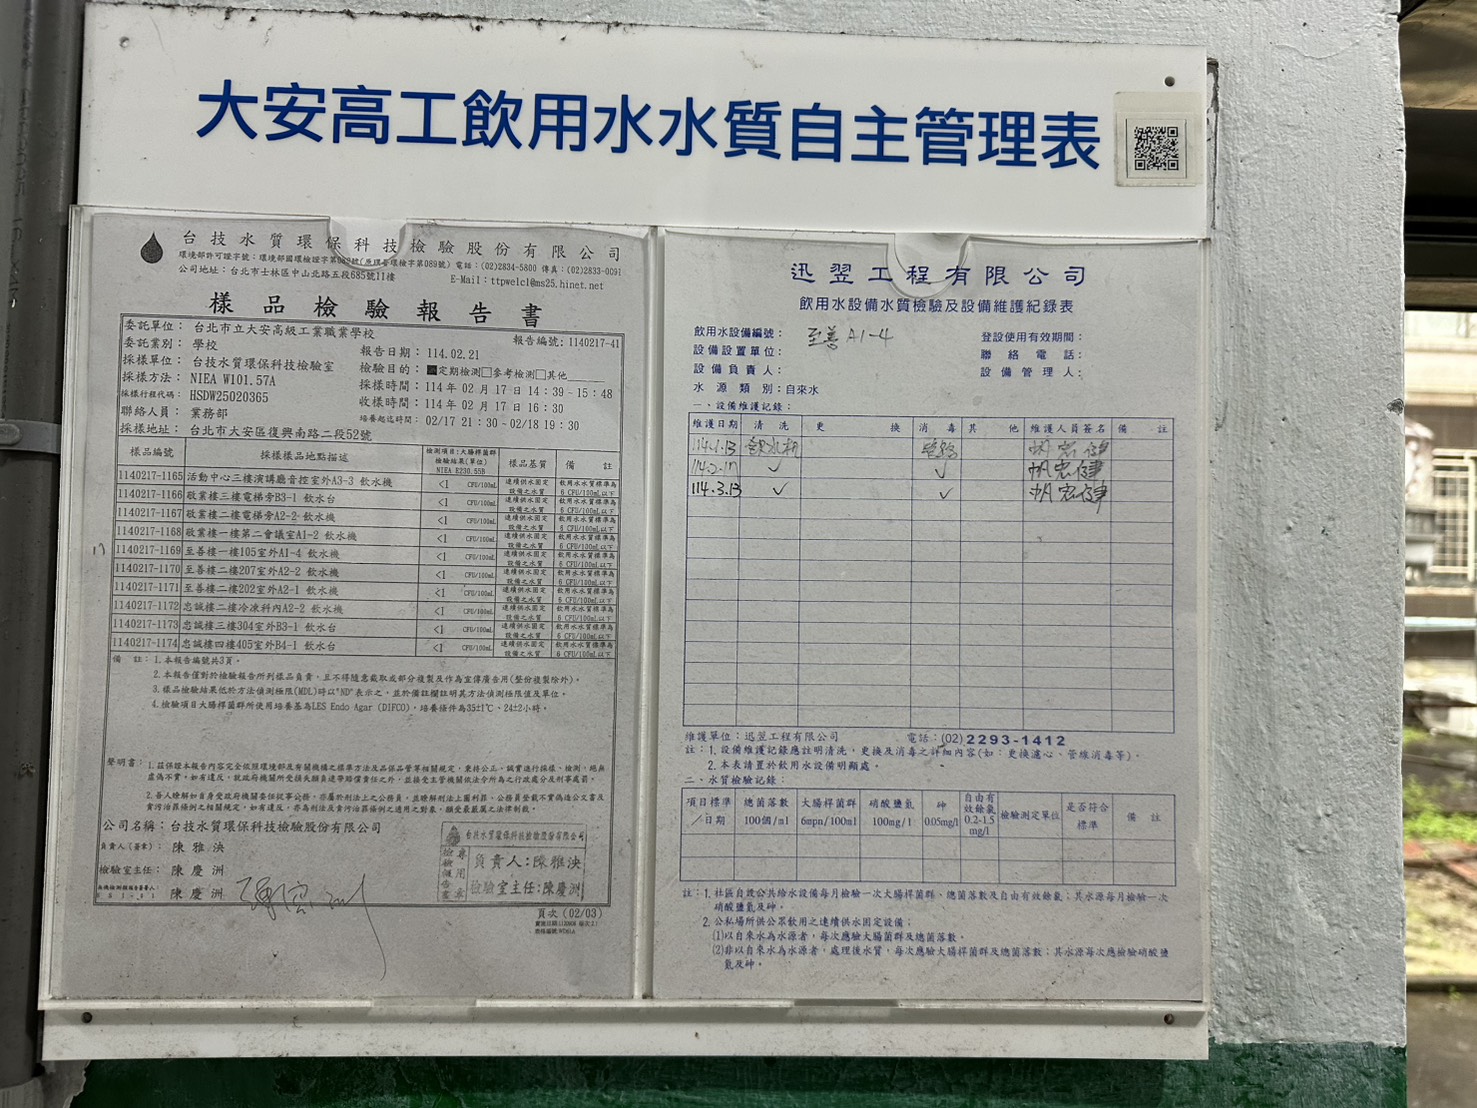 大安高工飲用水水質自主管理表
台技水質環保科技檢驗股份有限公司
公司地址：台北市士林區中山北路五段685號11樓
電話：(02)2834-5800 傳真：(02)2833-0091
E-Mail：ttpwelcl@ms25.hinet.net
樣品檢驗報告書
報告編號：1140217-41
委託單位：台北市立大安高級工業職業學校
委託業別：學校
報告日期：114.02.21
採樣單位：台技水質環保科技檢驗室
檢驗目的：■定期檢測□參考檢測□其他
採樣方法：NIEA W101.57A
採樣時間：114年02月17日14：39－15：48
採樣行程代碼：HSDW25020365
收樣時間：114年02月17日16：30
聯絡人員：業務部
培養起迄時間：02/17 21：30－02/18 19：30
採樣地址：台北市大安區復興南路二段52號
樣品編號 採樣樣品地點描述 檢測項目:大腸桿菌群 檢驗結果(單位) NIEA E230.55B 樣品基質 備註
1140217-1165 活動中心三樓演講廳音控室外A3-3 飲水機 <1 CFU/100mL 連續供水固定設備之水質 飲用水水質標準為6 CFU/100mL以下
1140217-1166 敬業樓三樓電梯旁B3-1 飲水台 <1 CFU/100mL 連續供水固定設備之水質 飲用水水質標準為6 CFU/100mL以下
1140217-1167 敬業樓二樓電梯旁A2-2 飲水機 <1 CFU/100mL 連續供水固定設備之水質 飲用水水質標準為6 CFU/100mL以下
1140217-1168 敬業樓一樓第二會議室A1-2 飲水機 <1 CFU/100mL 連續供水固定設備之水質 飲用水水質標準為6 CFU/100mL以下
1140217-1169 至善樓一樓105室外A1-4 飲水機 <1 CFU/100mL 連續供水固定設備之水質 飲用水水質標準為6 CFU/100mL以下
1140217-1170 至善樓二樓207室外A2-2 飲水機 <1 CFU/100mL 連續供水固定設備之水質 飲用水水質標準為6 CFU/100mL以下
1140217-1171 至善樓二樓202室外A2-1 飲水機 <1 CFU/100mL 連續供水固定設備之水質 飲用水水質標準為6 CFU/100mL以下
1140217-1172 忠誠樓二樓冷凍科內A2-2 飲水機 <1 CFU/100mL 連續供水固定設備之水質 飲用水水質標準為6 CFU/100mL以下
1140217-1173 忠誠樓三樓304室外B3-1 飲水台 <1 CFU/100mL 連續供水固定設備之水質 飲用水水質標準為6 CFU/100mL以下
1140217-1174 忠誠樓四樓405室外B4-1 飲水台 <1 CFU/100mL 連續供水固定設備之水質 飲用水水質標準為6 CFU/100mL以下
備 註：1.本報告編號共3頁。
2.本報告僅對於檢驗報告所列樣品負責，且不得隨意截取或部分複製及作為宣傳廣告用(整份複製除外)。
3.樣品檢驗結果低於方法偵測極限(MDL)時以"ND"表示之，並於備註欄註明其方法偵測極限值及單位。
4.檢驗項目大腸桿菌群所使用培養基為LES Endo Agar (DIFCO)，培養條件為35±1℃、24±2小時。
聲明書：1.茲保證本報告內容完全依照環境部及有關機構之標準方法及品保品管等相關規定，秉持公正、誠實進行採樣、檢測，絕無
虛偽不實，如有違反，就政府機關所受損失願負連帶賠償責任之外，並接受主管機關依法令所為之行政處分及刑事處罰。
2.吾人瞭解如自身受政府機關委任從事公務，亦屬於刑法上之公務員，並瞭解刑法上圖利罪、公務員登載不實偽造公文書及
貪污治罪條例之相關規定，如有違反，亦為刑法及貪污治罪條例之適用之對象，願受最嚴厲之法律制裁。
公司名稱：台技水質環保科技檢驗股份有限公司
負責人(簽章)：陳雅泱
檢驗室主任：陳慶洲
陳慶洲
台技水質環保科技檢驗股份有限公司
檢驗報告專用章
負責人:陳雅泱
檢驗室主任:陳慶洲
頁次 (02/03)
迅翌工程有限公司
飲用水設備水質檢驗及設備維護紀錄表
飲用水設備編號：至善 A1-4
登設使用有效期間：
設備設置單位：
聯絡電話：
設備負責人：
設備管理人：
水源類別：自來水
一、設備維護記錄：
維護日期 清洗 更換 消毒 其他 維護人員簽名 備註
114.1.13 飲水机 管路
114.2.17 ✓ ✓
114.3.13 ✓ ✓
維護單位：迅翌工程有限公司 電話：(02)2293-1412
註：1.設備維護記錄應註明清洗，更換及消毒之詳細內容(如：更換濾心、管線消毒等)。
2.本表請置於飲用水設備明顯處。
二、水質檢驗記錄：
項目標準／日期 總菌落數 100個/ml 大腸桿菌群 6mpn/100ml 硝酸鹽氮 100mg/l 砷 0.05mg/l 自由有效餘氯 0.2-1.5 mg/l 檢驗測定單位 是否符合標準 備註
註：1.社區自設公共給水設備每月檢驗一次大腸桿菌群、總菌落數及自由有效餘氯；其水源每月檢驗一次
硝酸鹽氮及砷。
2.公私場所供公眾飲用之連續供水固定設備：
(1)以自來水為水源者，每次應驗大腸菌群及總菌落數。
(2)非以自來水為水源者，處理後水質，每次應驗大腸桿菌群及總菌落數；其水源每次應檢驗硝酸鹽
氮及砷。